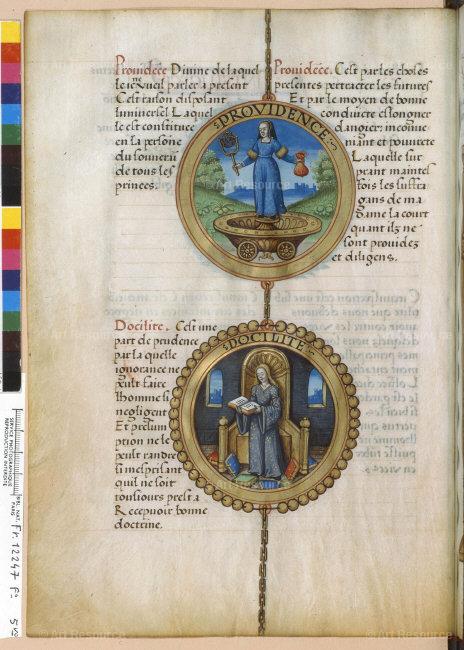 Providēce Divine de laquel
le ie vueil parler a present
C'est raison disposant
luminersel Laquel
le est constituee
en la personne
du souuerū
de tous les
princes.
Providēce. C'est par les choses
presentes perceacter les futures
Et par le moyen de bonne
conduicte eslongner
dangier: inconue
niant et pouurete
Laquelle sur
prant maintes
fois les suffra
gans de ma
dame la court
quant ilz ne
sont providez
et diligens.
PROVIDENCE
Docilite. C'est une
part de prudence
par la quelle
ignorance ne
peult faire
lhomme si
negligent
Et presum
ption ne le
peult rander
si mesprisant
quil ne soit
tousiours prest a
Recepuoir bonne
doctrine.
DOCILITE
SERVICE PHOTOGRAPHIQUE
REPRODUCTION INTERDITE
BIBL. NAT.
PARIS
Fr. 12247 f°
5 v°
© Art Resource